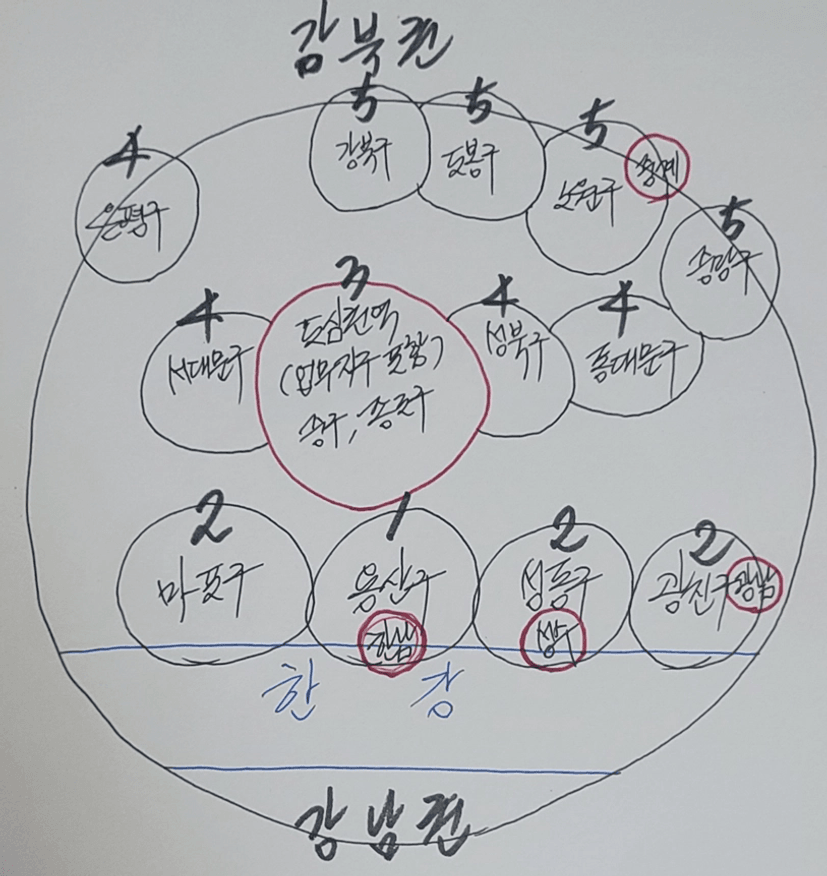 강북권
5
강북구
5
도봉구
5
노원구
중계
4
은평구
5
중랑구
4
서대문구
3
도심권역
(업무지구 포함)
중구, 종로구
4
성북구
4
동대문구
2
마포구
1
용산구
한남
2
성동구
성수
2
광진구
광남
한강
강남권